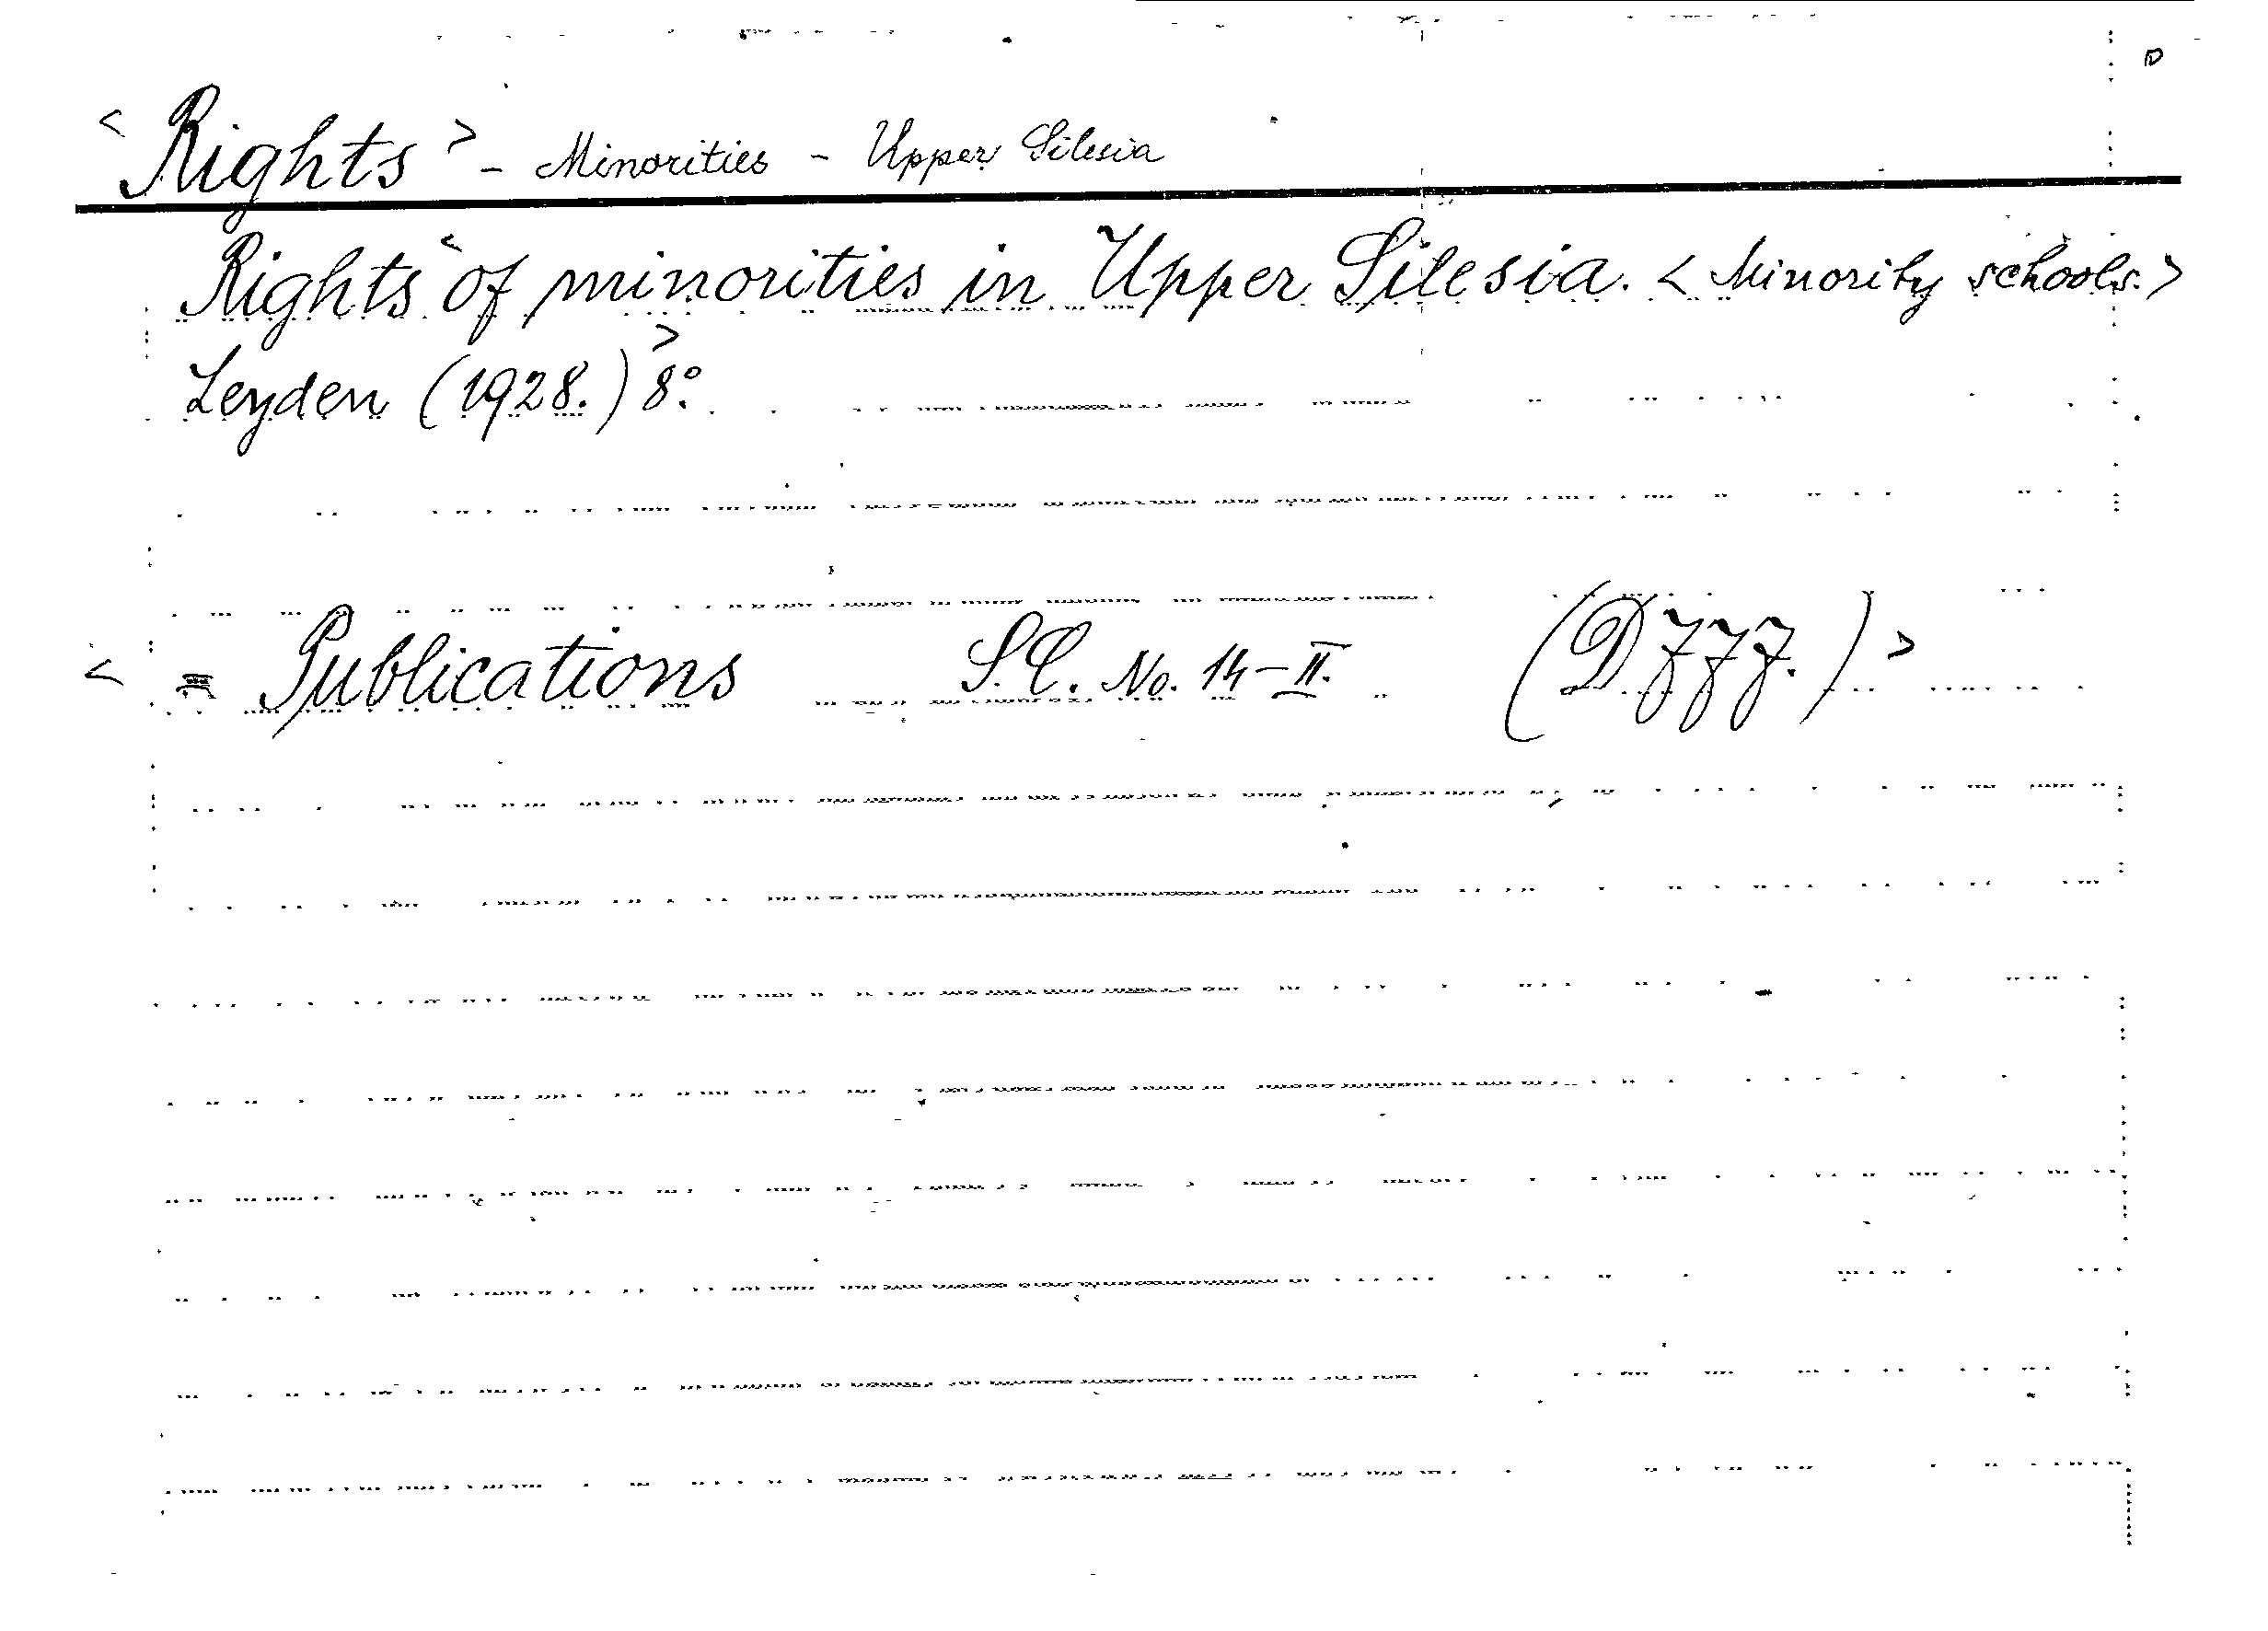 <Rights> - Minorities - Upper Silesia
Rights <of minorities in Upper Silesia. <Minority schools.>
Leyden (1928.)> 8º.
< = Publications S.C. No. 14-II. (DJJJ.) >